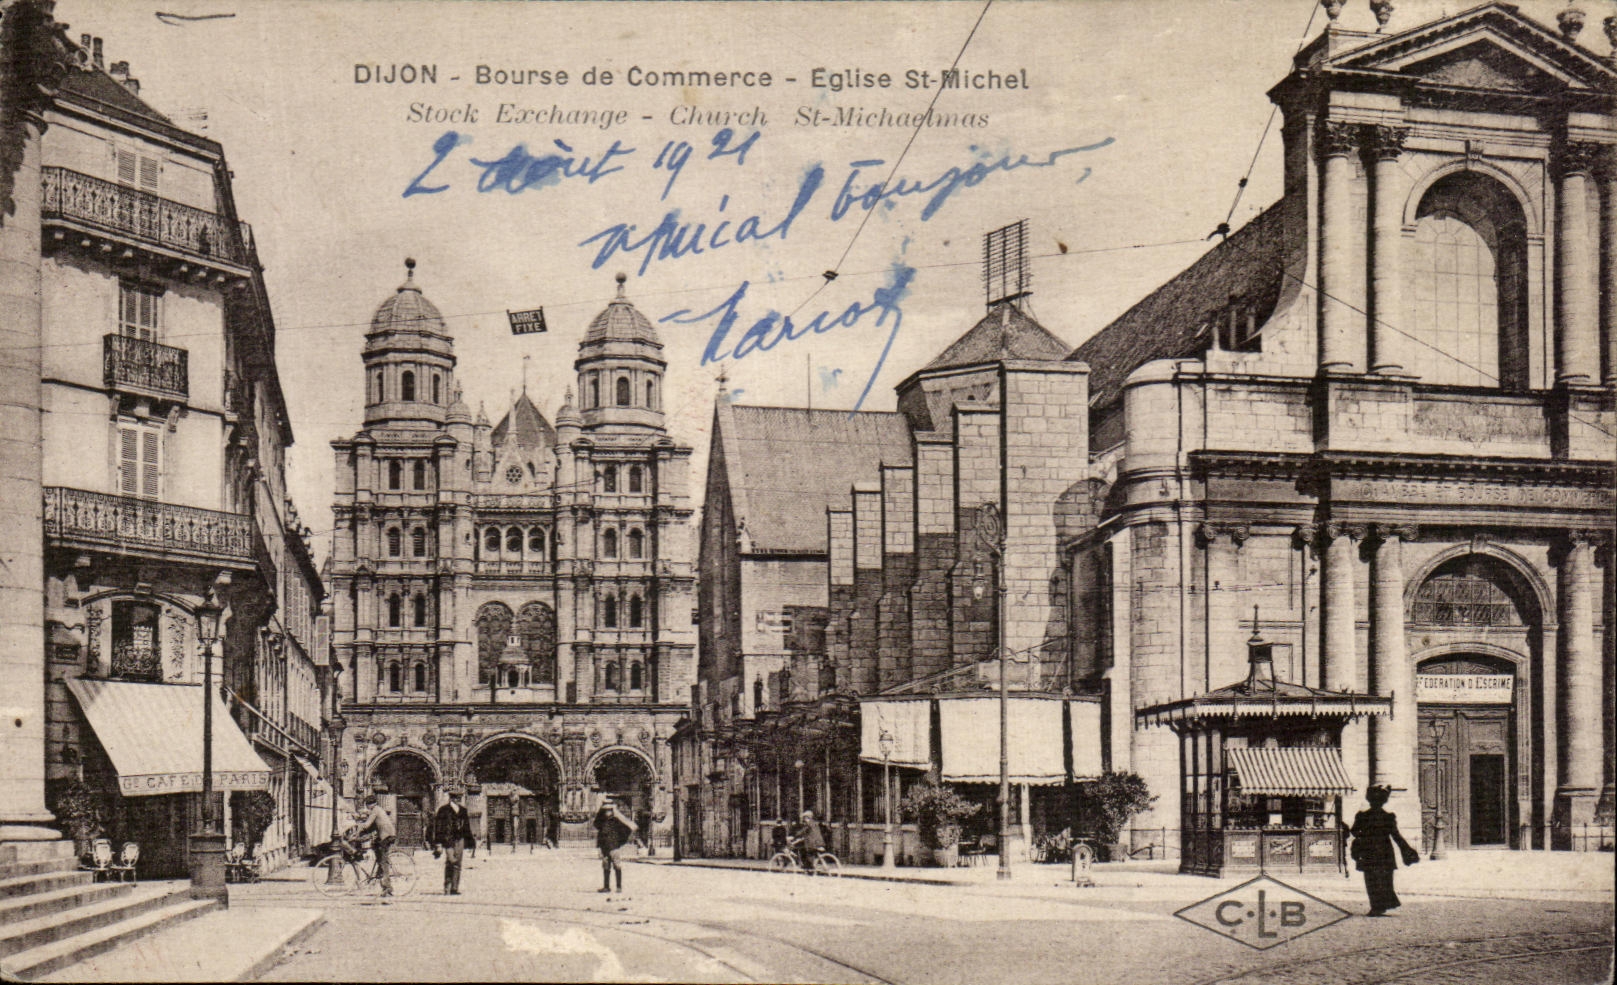 DIJON - Bourse de Commerce - Eglise St-Michel
Stock Exchange - Church St-Michaelmas
2 Août 1921
amical toujour,
Mariot
ARRET
FIXE
CHAMBRE ET BOURSE DE COMMERCE
FEDERATION D'ESCRIME
GD CAFE DE PARIS
C·L·B